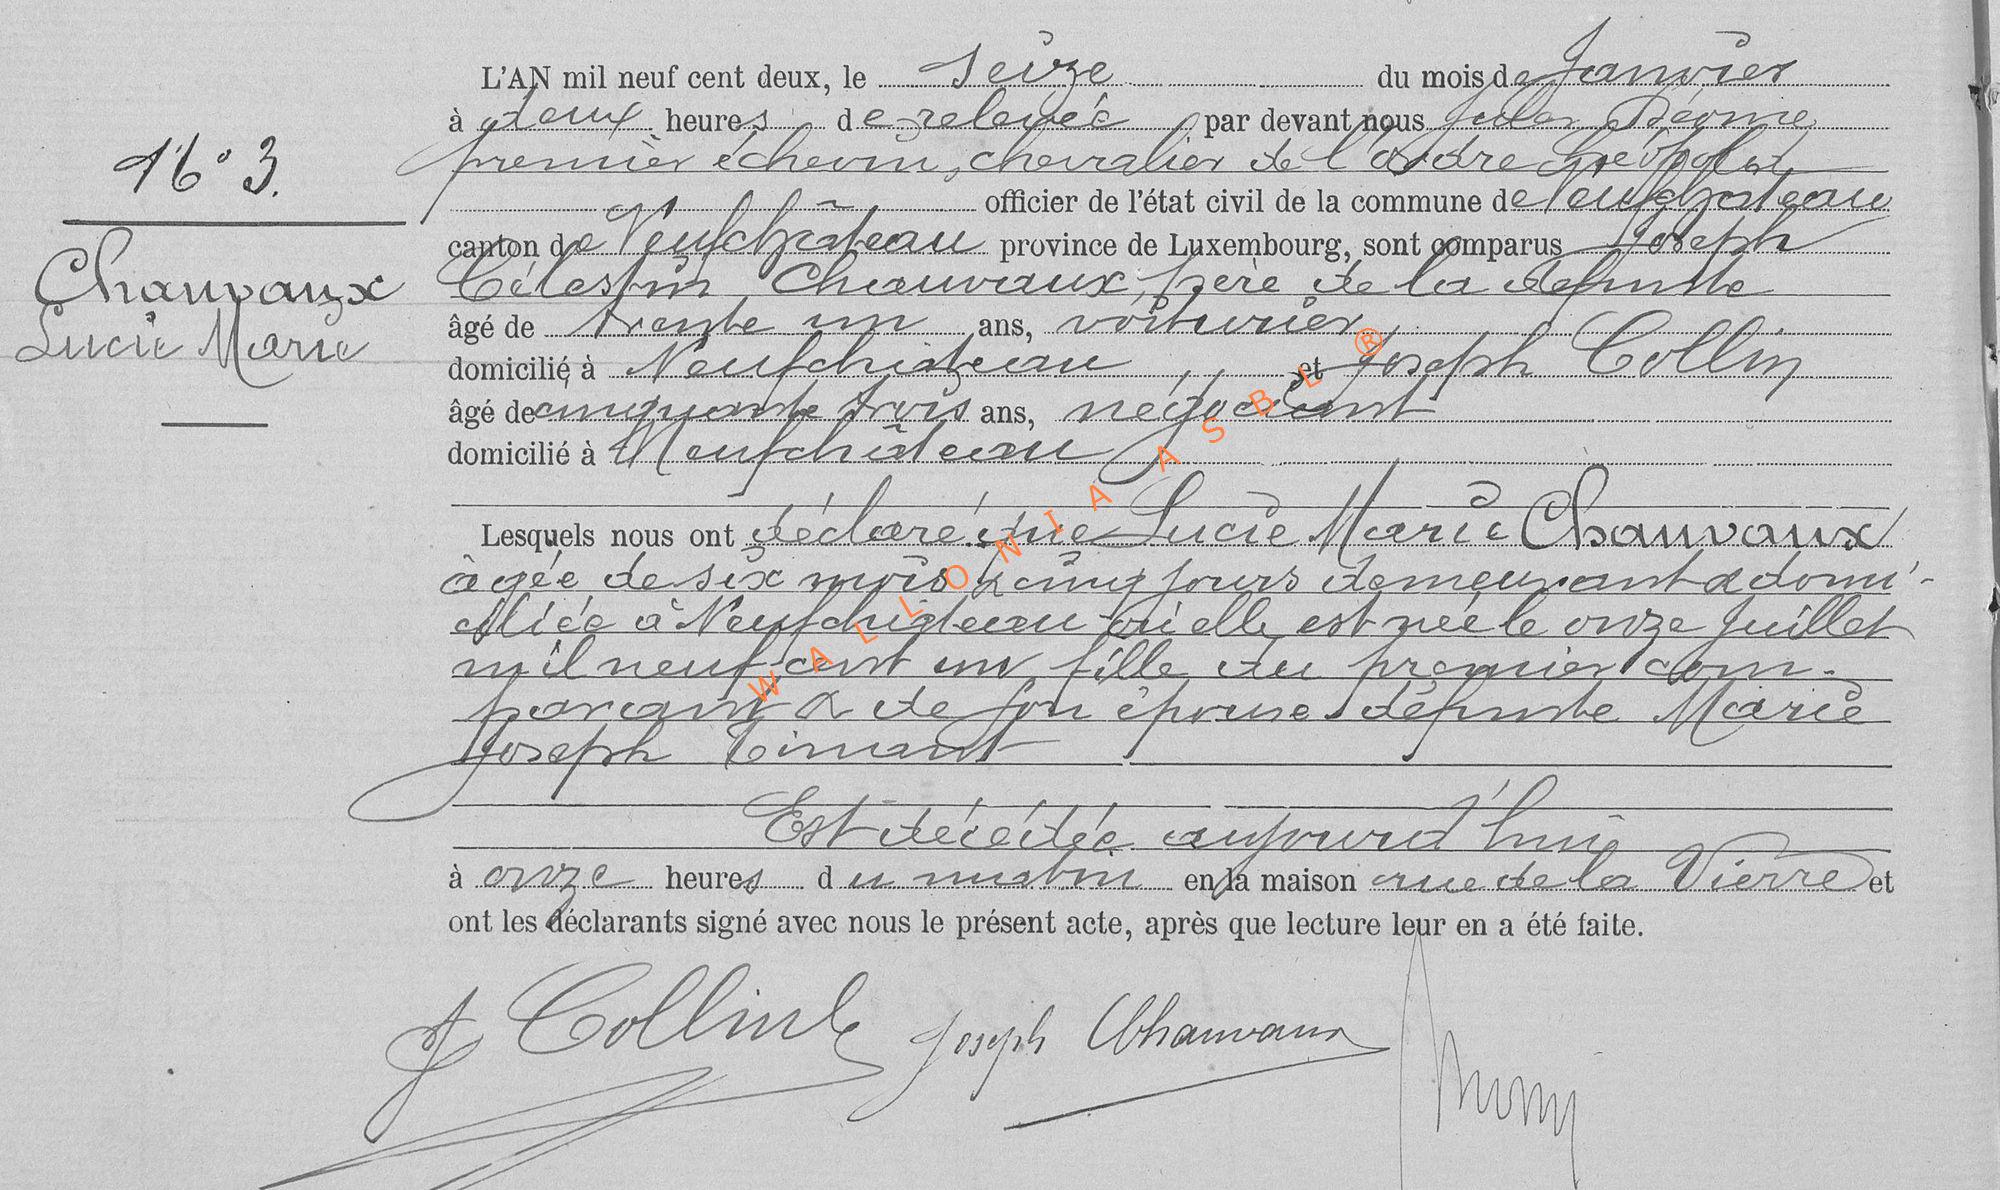 N° 3.
Chauvaux
Lucie Marie
L'AN mil neuf cent deux, le seize du mois de Janvier
à deux heures de relevée par devant nous Jules
premier échevin, chevalier de l'ordre Léopold
officier de l'état civil de la commune de Neufchâteau
canton de Neufchâteau province de Luxembourg, sont comparus Joseph
Célestin Chauvaux, père de la défunte
âgé de trente un ans, voiturier
domicilié à Neufchâteau et Joseph Collin
âgé de cinquante trois ans, négociant
domicilié à Neufchâteau
Lesquels nous ont déclaré que Lucie Marie Chauvaux
âgée de six mois & cinq jours demeurant & domi-
ciliée à Neufchâteau où elle est née le onze Juillet
mil neuf cent un fille du premier com-
parant & de son épouse défunte Marie
Joseph Timant
Est décédée aujourd'hui
à onze heures du matin en la maison rue de la Vierre et
ont les déclarants signé avec nous le présent acte, après que lecture leur en a été faite.
J Collin Joseph Chauvaux
WALLONIA ASBL ®